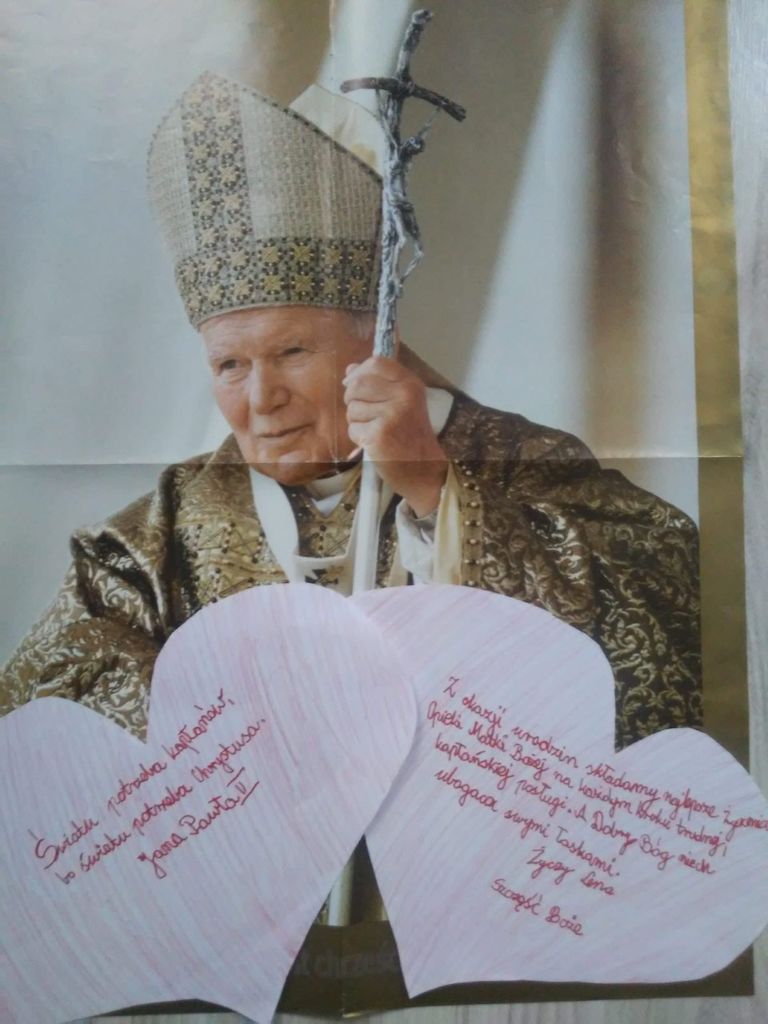 Światu potrzeba kapłanów,
bo światu potrzeba Chrystusa.
Jana Pawła II
Z okazji urodzin składamy najlepsze życzenia
Opieki Matki Bożej na każdym kroku trudnej,
kapłańskiej posługi. A Dobry Bóg niech
ubogaca swymi łaskami.
Życzy Lena
Szczęść Boże
nt chrześc